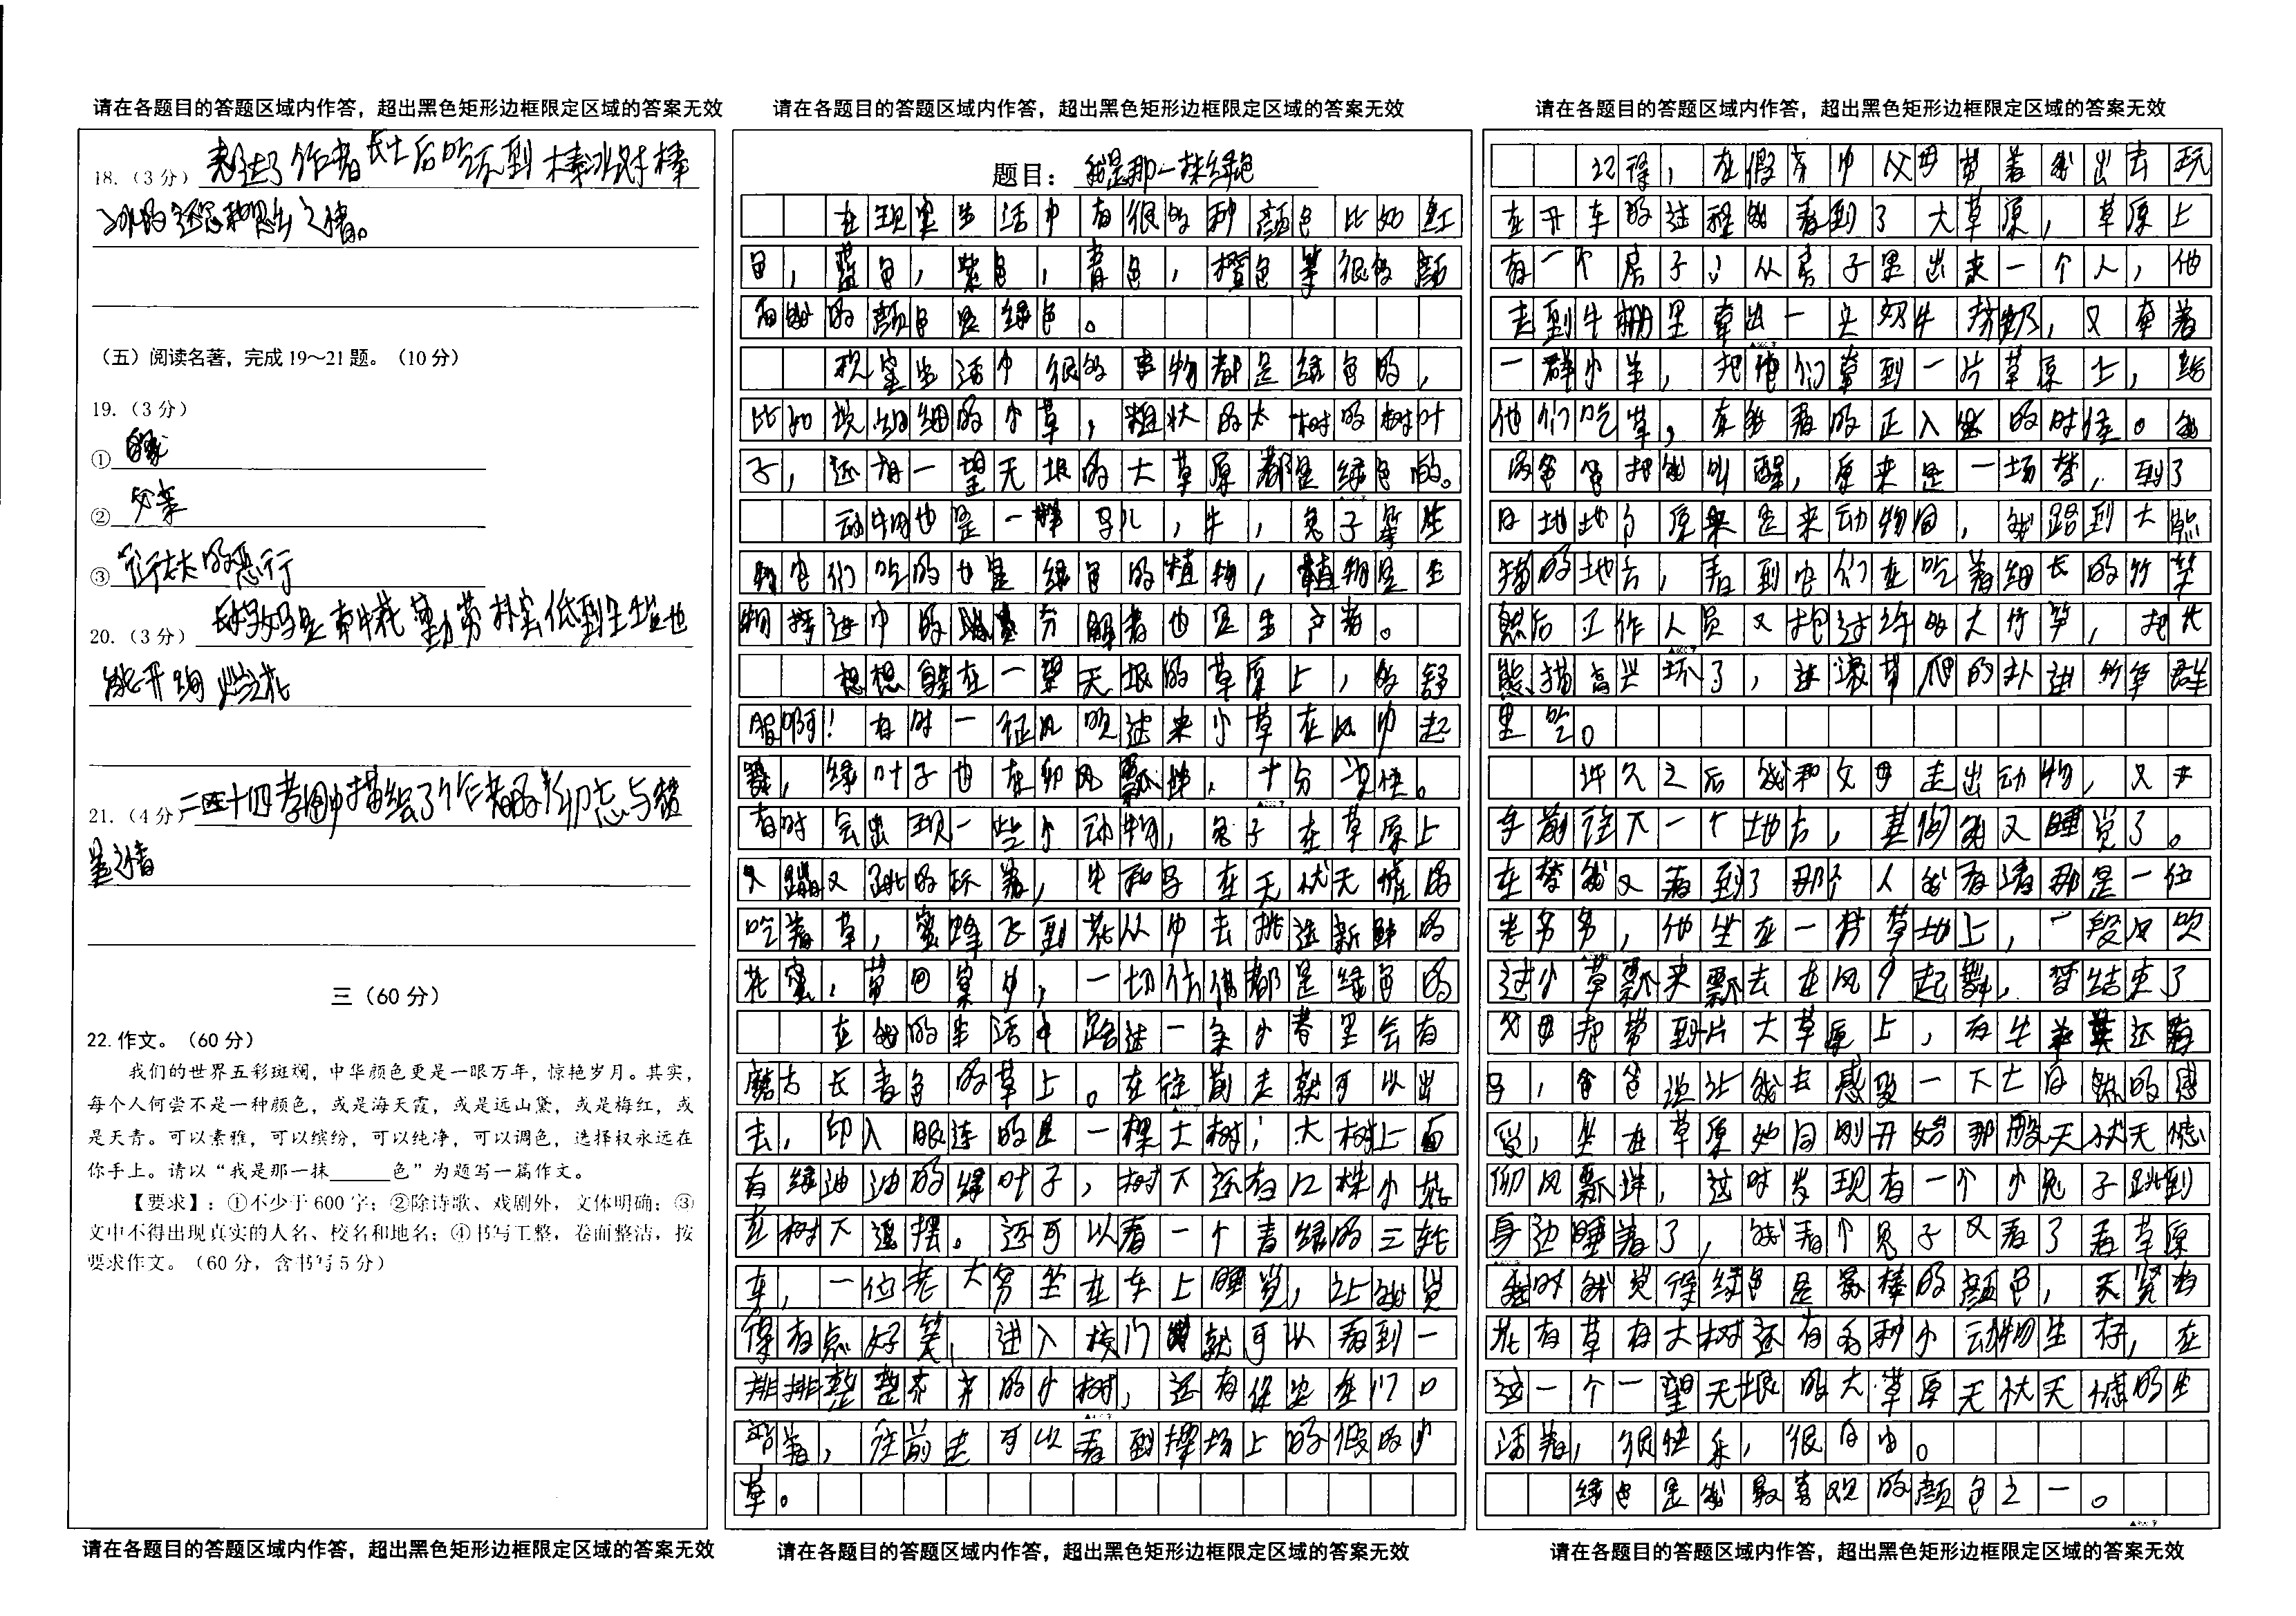 请在各题目的答题区域内作答，超出黑色矩形边框限定区域的答案无效
18.（3分） 表达了作者长大后吃不到棒冰对棒
冰的还念和思乡之情。
（五）阅读名著，完成19～21题。（10分）
19.（3分）
①
② 父亲
③ 衍太太的恶行
20.（3分） 长妈妈是牵牛花勤劳朴实低到尘埃也
能开绚烂花
21.（4分） 二十四孝图中描绘了作者的
之情
三（60分）
22.作文。（60分）
我们的世界五彩斑斓，中华颜色更是一眼万年，惊艳岁月。其实，
每个人何尝不是一种颜色，或是海天霞，或是远山黛，或是梅红，或
是天青。可以素雅，可以缤纷，可以纯净，可以调色，选择权永远在
你手上。请以“我是那一抹______色”为题写一篇作文。
【要求】：①不少于600字；②除诗歌、戏剧外，文体明确；③
文中不得出现真实的人名、校名和地名；④书写工整，卷面整洁，按
要求作文。（60分，含书写5分）
请在各题目的答题区域内作答，超出黑色矩形边框限定区域的答案无效
请在各题目的答题区域内作答，超出黑色矩形边框限定区域的答案无效
题目：我是那一抹绿色
在现实生活中有很多种颜色比如红
色，蓝色，紫色，青色，橙色等很多颜
有我的颜色是绿色。
现实生活中很多事物都是绿色的，
比如说细细的小草，粗壮的大树的树叶
子，还有一望无垠的大草原都是绿色的。
动物也是一样马儿，牛，兔子等生
物它们吃的也是绿色的植物，植物是生
物 中的 分解者也是生产者。
想想自身在一望无垠的草原上，多舒
服啊！有时一征风吹过来小草在风中起
舞，绿叶子也在仰风飘洋，十分 快。
有时会出现一些小动物，兔子在草原上
又蹦又跳的 着，牛和马在无忧无虑的
吃着草，蜜蜂飞到花丛中去挑选新鲜的
花蜜，带回巢中，一切仿佛都是绿色的
在我的生活中路过一条小巷里会有
磨古长青色的草上。在往前走就可以出
去，印入眼连的是一棵大树，大树上面
有绿油油的绿叶子，树下还有几株小花
在树下遥摆。还可以看一个青绿的三轮
车，一位老大爷坐在车上睡觉，让我觉
得有点好笑，进入校门 就可以看到一
排排整整齐齐的小树，还有保安在门口
站着，往前走可以看到操场上的假的小
草。
请在各题目的答题区域内作答，超出黑色矩形边框限定区域的答案无效
请在各题目的答题区域内作答，超出黑色矩形边框限定区域的答案无效
记得，在假期中父母带着我出去玩
在开车的过程我看到了大草原，草原上
有一个房子，从房子里出来一个人，他
走到牛棚里牵出一头奶牛挤奶，又牵着
一群小羊，把他们牵到一片草原上，给
他们吃草，在我看的正入 的时候。我
的爸爸把我叫醒，原来是一场梦，到了
目地地方原来是来动物园，我路到大熊
猫的地方，看到它们在吃着细长的竹笋
然后工作人员又抱过许多大竹笋，把大
熊猫高兴坏了，连滚带爬的扑进竹笋群
里吃。
许久之后我和父母走出动物，又开
车前往下一个地方，其间我又睡觉了。
在梦我又看到了那个人我看清那是一位
老爷爷，他坐在一片草地上，一段风吹
过小草飘来飘去在风中起舞，梦结束了
父母把带到片大草原上，有牛 还有
马，爸爸说让我去感受一下大自然的感
受，坐在草原如同刚开始那般无忧无虑
仰风飘洋，这时发现有一个小兔子跳到
身边睡着了，我看个兔子又看了看草原
此时我觉得绿色是最棒的颜色，天 有
花有草有大树还有各种小动物生存，在
这一个一望无垠的大草原无忧无虑的生
活着，很快乐，很自由。
绿色是我最喜欢的颜色之一。
请在各题目的答题区域内作答，超出黑色矩形边框限定区域的答案无效